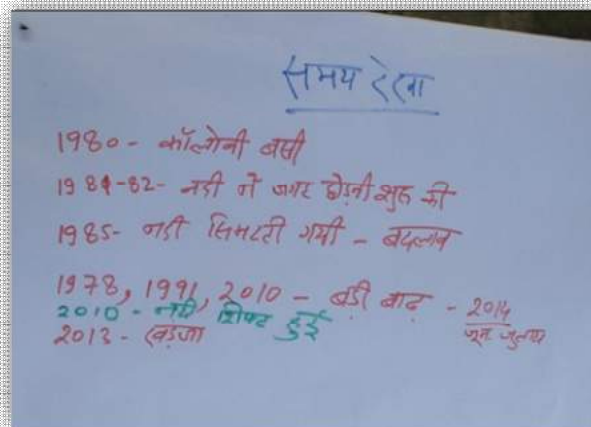 समय रेखा
1980 - कॉलोनी बसी
1981-82 - नदी ने जगह छोड़नी शुरू की
1985 - नदी सिमटती गयी - बदलाव
1978, 1991, 2010 - बड़ी बाढ़ - 2014
जून जुलाय
2010 - नदी शिफ्ट हुई
2013 - खड़ंजा